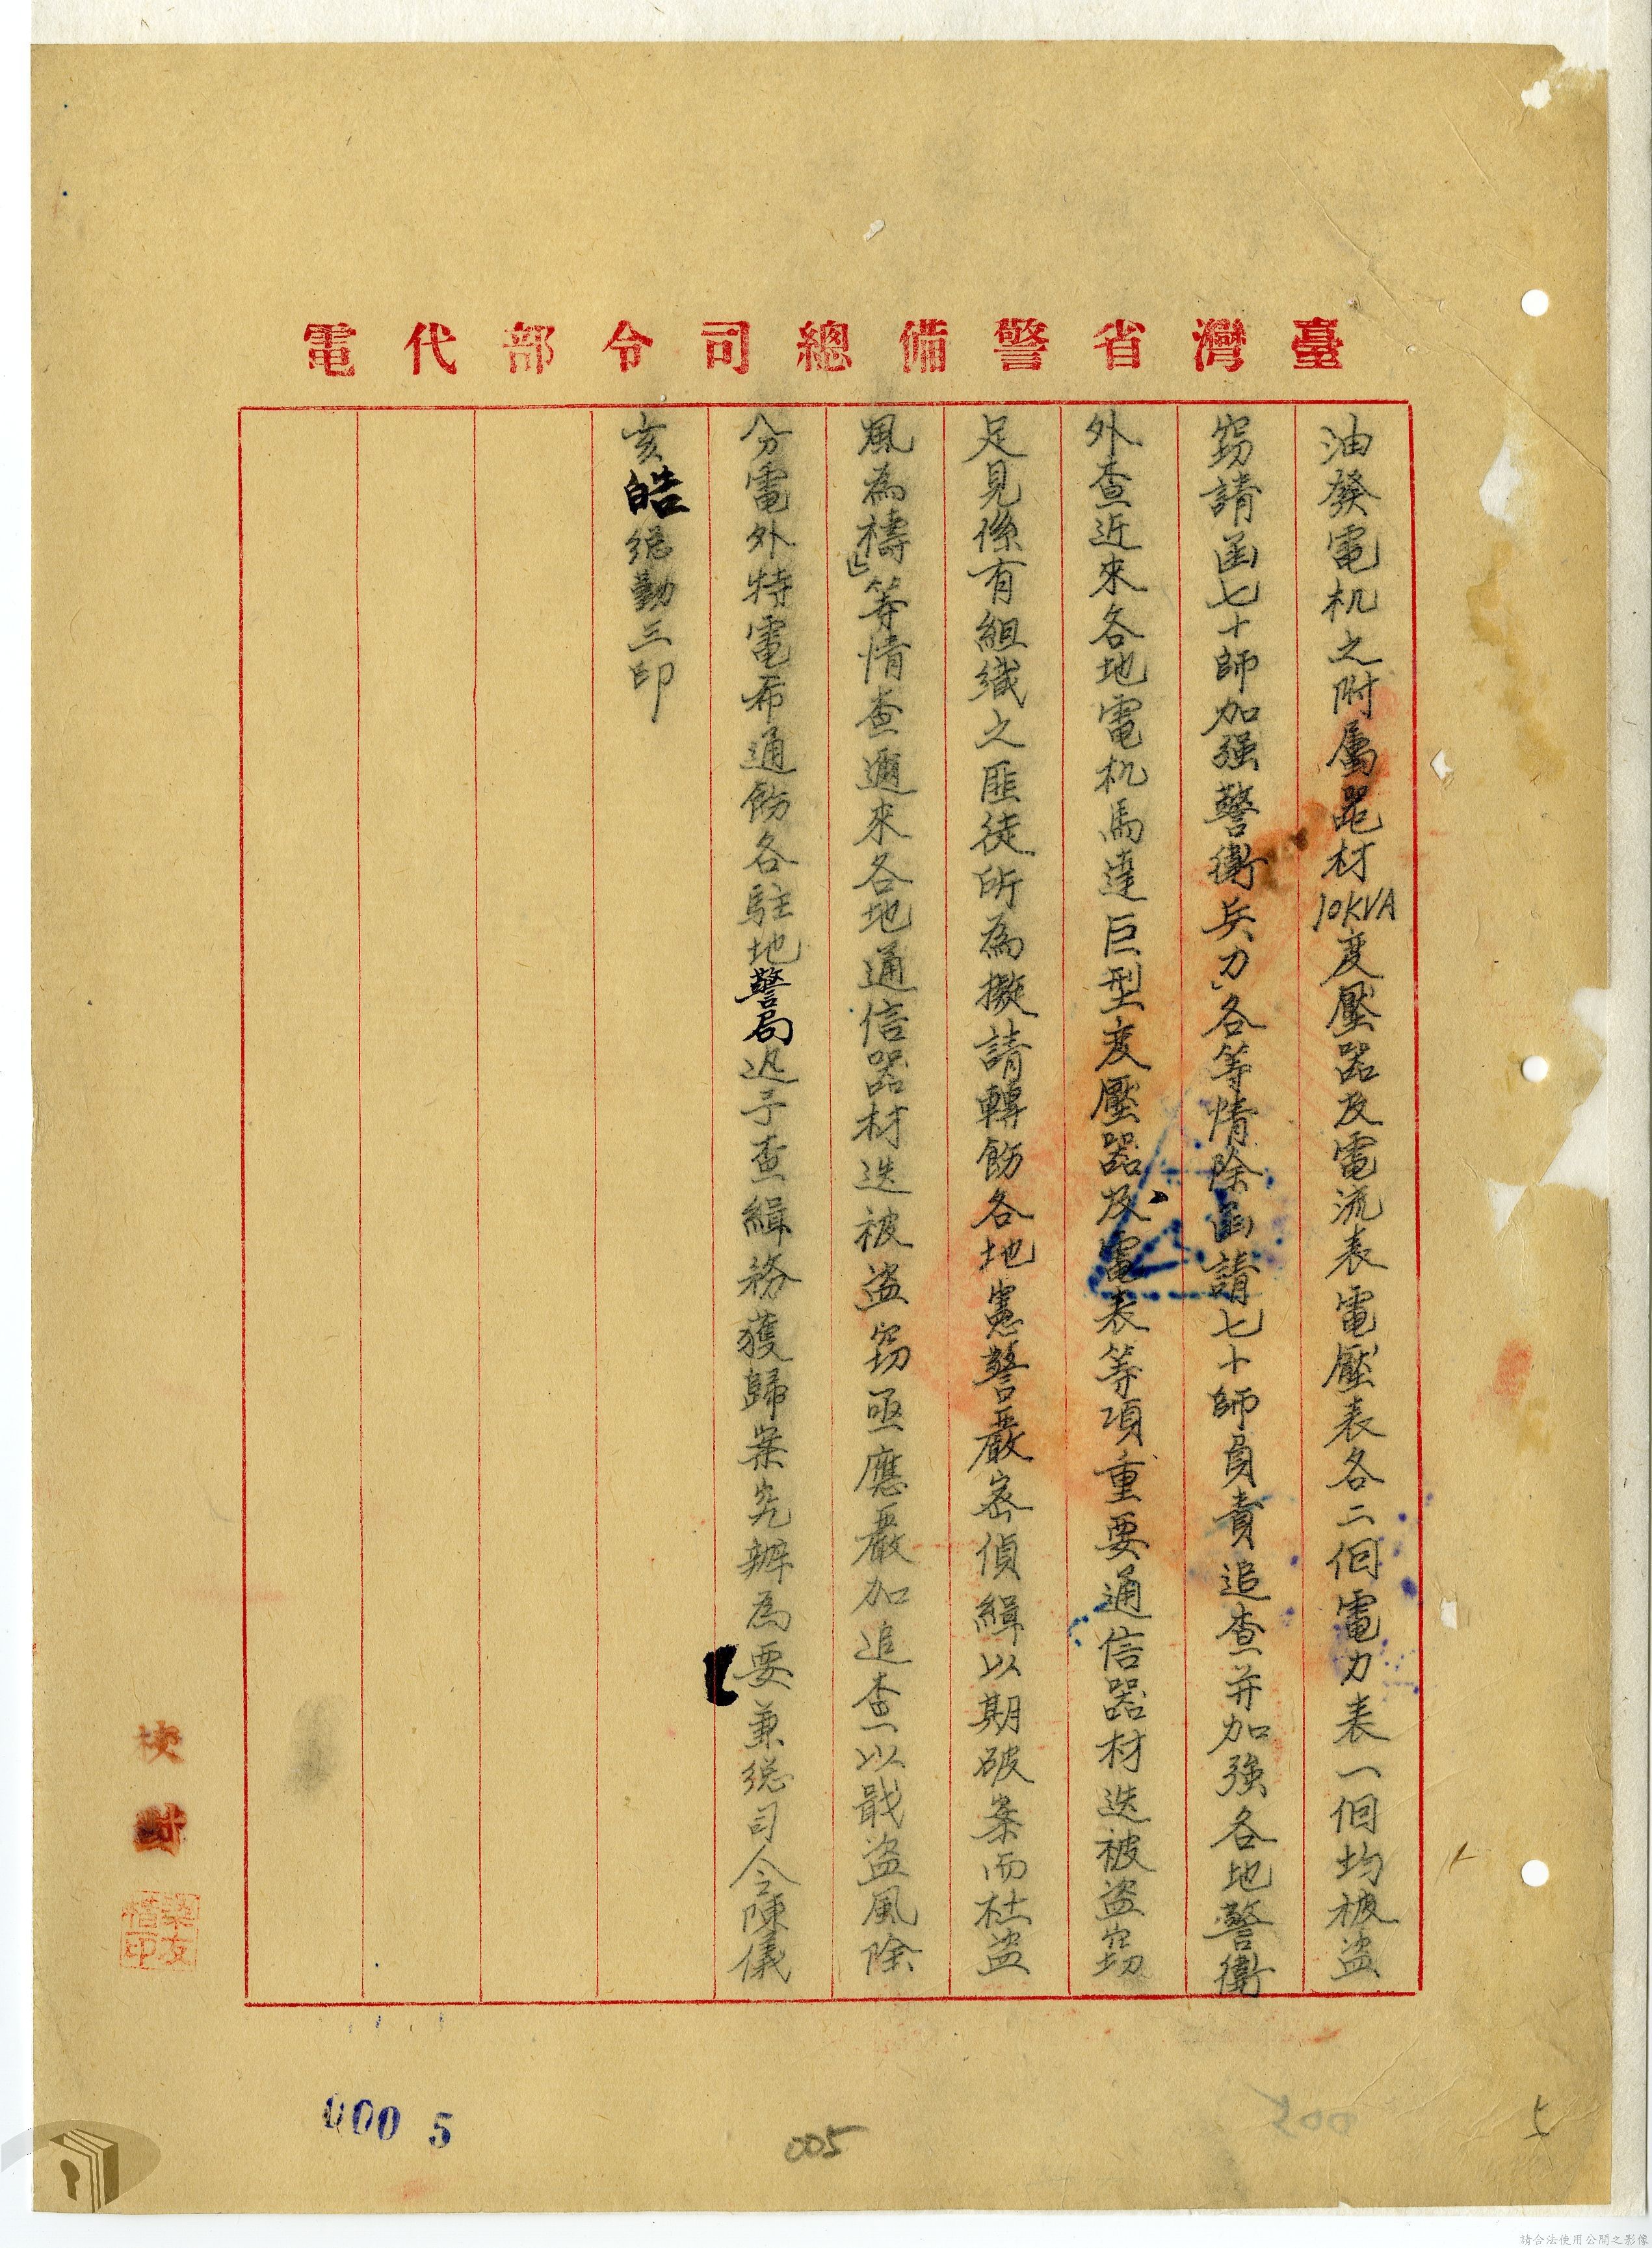 臺灣省警備總司令部代電
油發電机之附屬器材10KVA变壓器及電流表電壓表各二個電力表一個均被盜
窃請函七十師加强警衛兵力」各等情除函請七十師負責追查并加強各地警衛
外查近來各地電机馬達巨型变壓器及電表等項重要通信器材迭被盜窃
足見係有組織之匪徒所為擬請轉飭各地憲警嚴密偵緝以期破案而杜盜
風為禱」等情查邇來各地通信器材迭被盜窃亟應嚴加追查以戢盜風除
分電外特電希通飭各駐地警局迅予查緝務獲歸案究辦為要兼總司令陳儀
亥皓總勤三印
校對
梁友楷印
000 5
005
5
請合法使用公開之影像